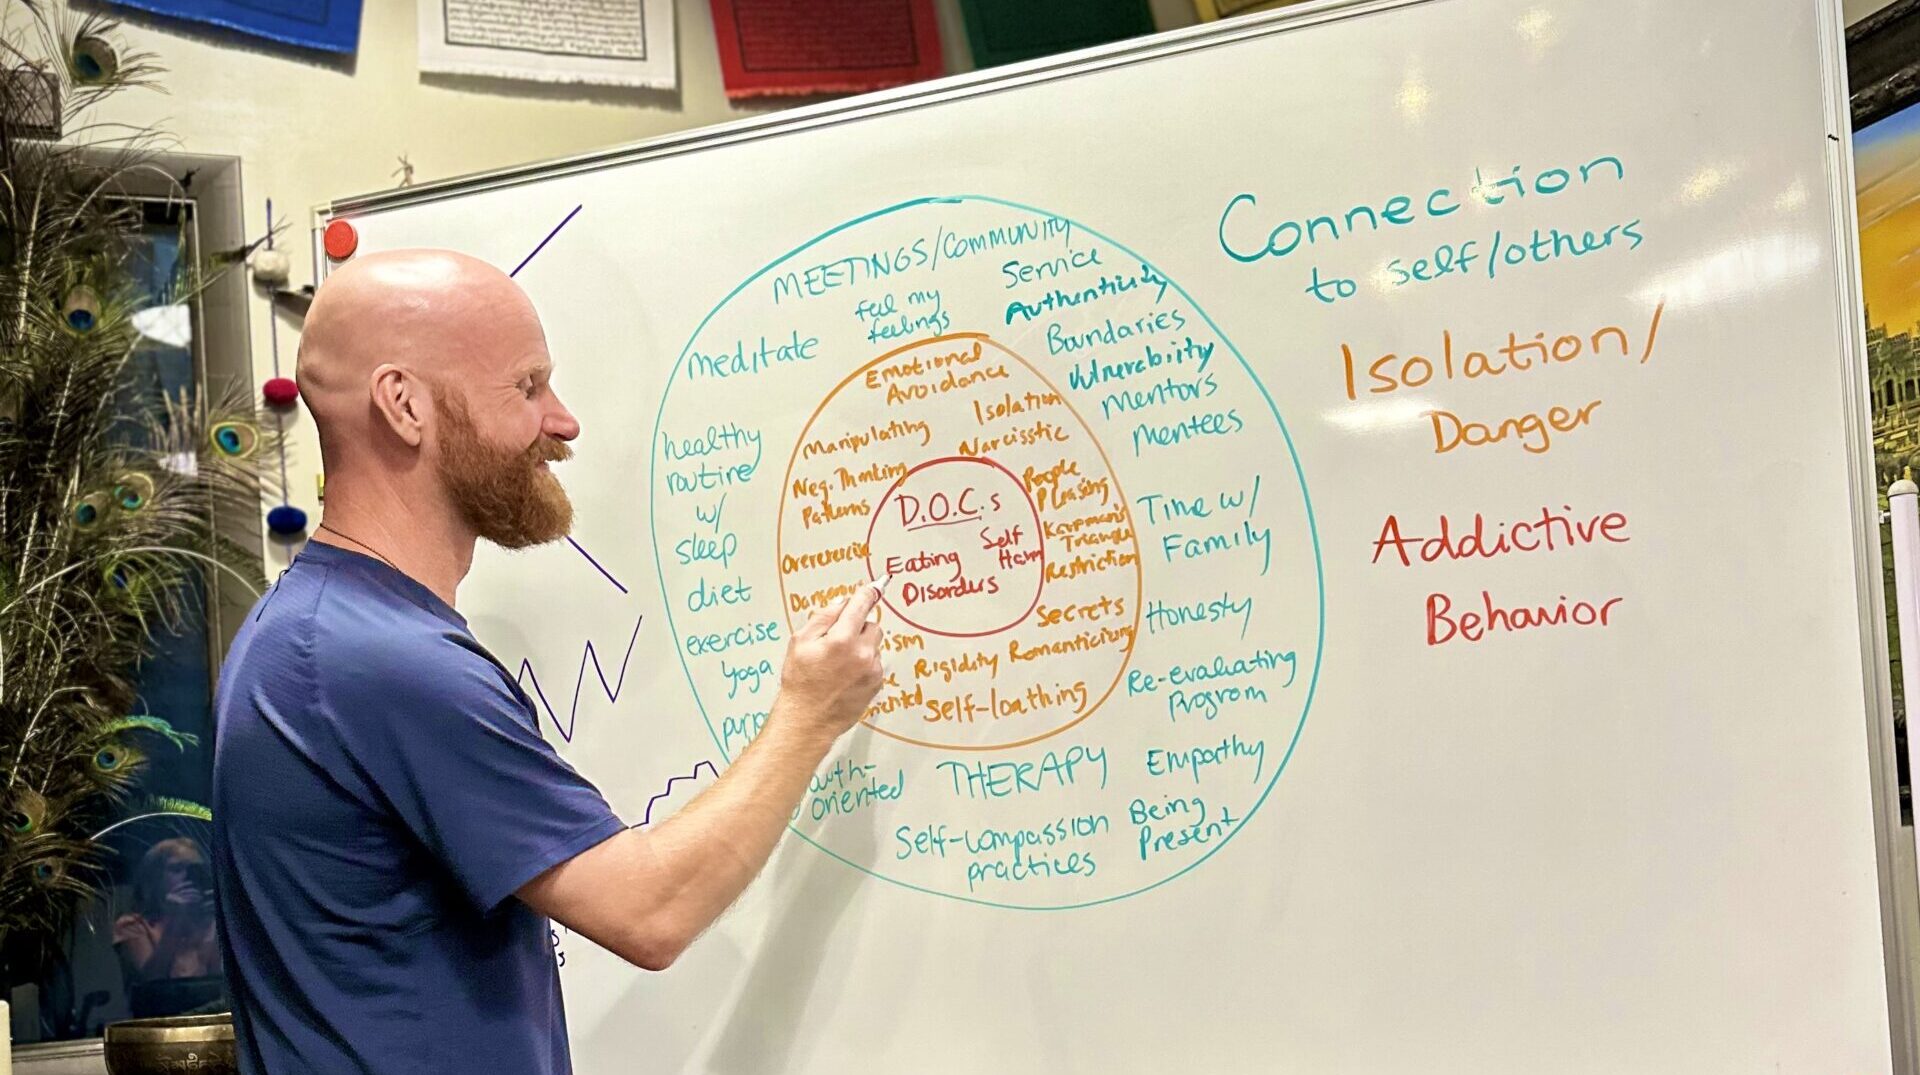 MEETINGS/COMMUNITY
Service
feel my
feelings
Authenticity
meditate
Boundaries
Vulnerability
Mentors
Mentees
healthy
routine
w/
sleep
diet
exercise
yoga
Time w/
Family
Honesty
Re-evaluating
Program
Empathy
Being
Present
THERAPY
oriented
Self-compassion
practices
Emotional
Avoidance
Isolation
Narcisstic
Manipulating
Neg. Thinking
Patterns
People
Pleasing
Karpman's
Triangle
Restriction
Overexercise
Secrets
Rigidity Romanticizing
Self-loathing
D.O.C.s
Self
Harm
Eating
Disorders
Connection
to self/others
Isolation/
Danger
Addictive
Behavior